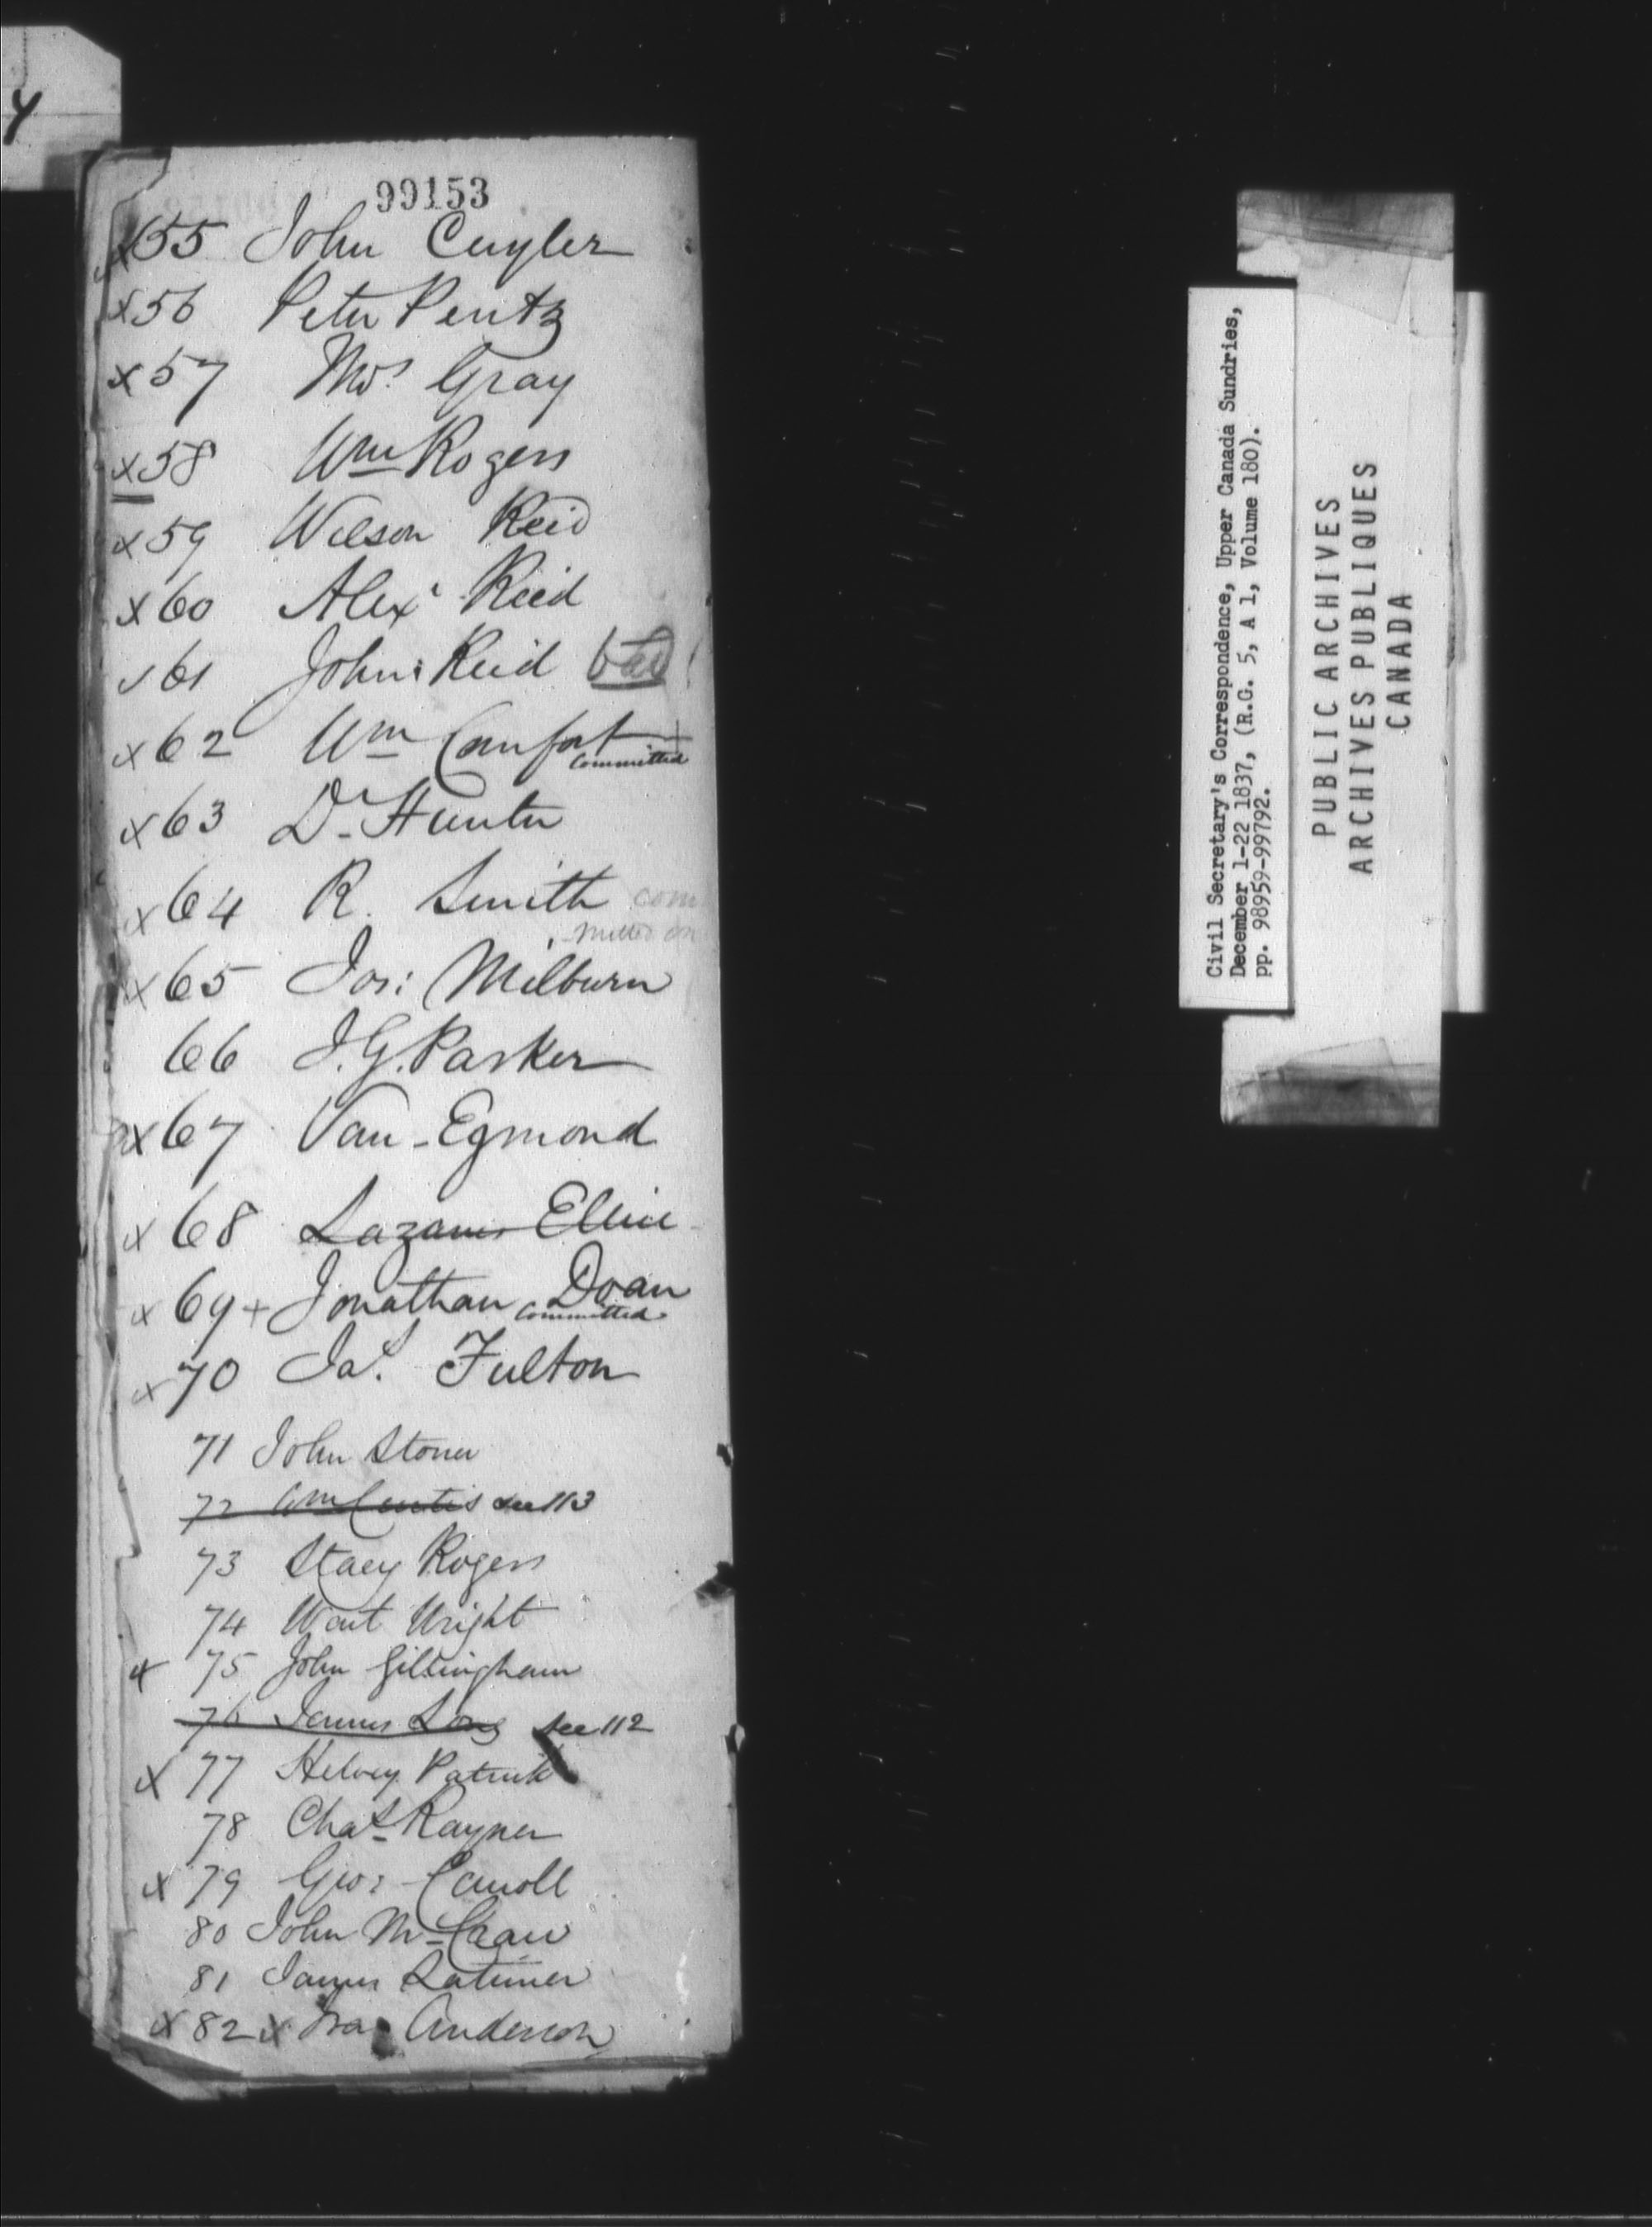 4
99153
x55 John Cuyler
x56 Peter Pentz
x57 Thos Gray
x58 Wm Rogers
x59 Wilson Reid
x60 Alexr Reid
61 John Reid bad
x62 Wm Comfort +
committed
x63 Dr Hunter
x64 R. Smith com
mitted
x65 Jos: Milburn
66 J. G. Parker
x67 Van-Egmond
x68 Lazarus Ellice
x69+ Jonathan Doan
committed
x70 Jas. Fulton
71 John Stoner
72 Wm Curtis see 113
73 Stacy Rogers
74 Wait Wright
x 75 John Gillingham
76 James Long see 112
x 77 Helvey Patrick
78 Chas Rayner
x 79 Geo: Carroll
80 John McCraw
81 James Latimer
x 82 x Ira Anderson
Civil Secretary's Correspondence, Upper Canada Sundries,
December 1-22 1837, (R.G. 5, A 1, Volume 180).
pp. 98959-99792.
PUBLIC ARCHIVES
ARCHIVES PUBLIQUES
CANADA